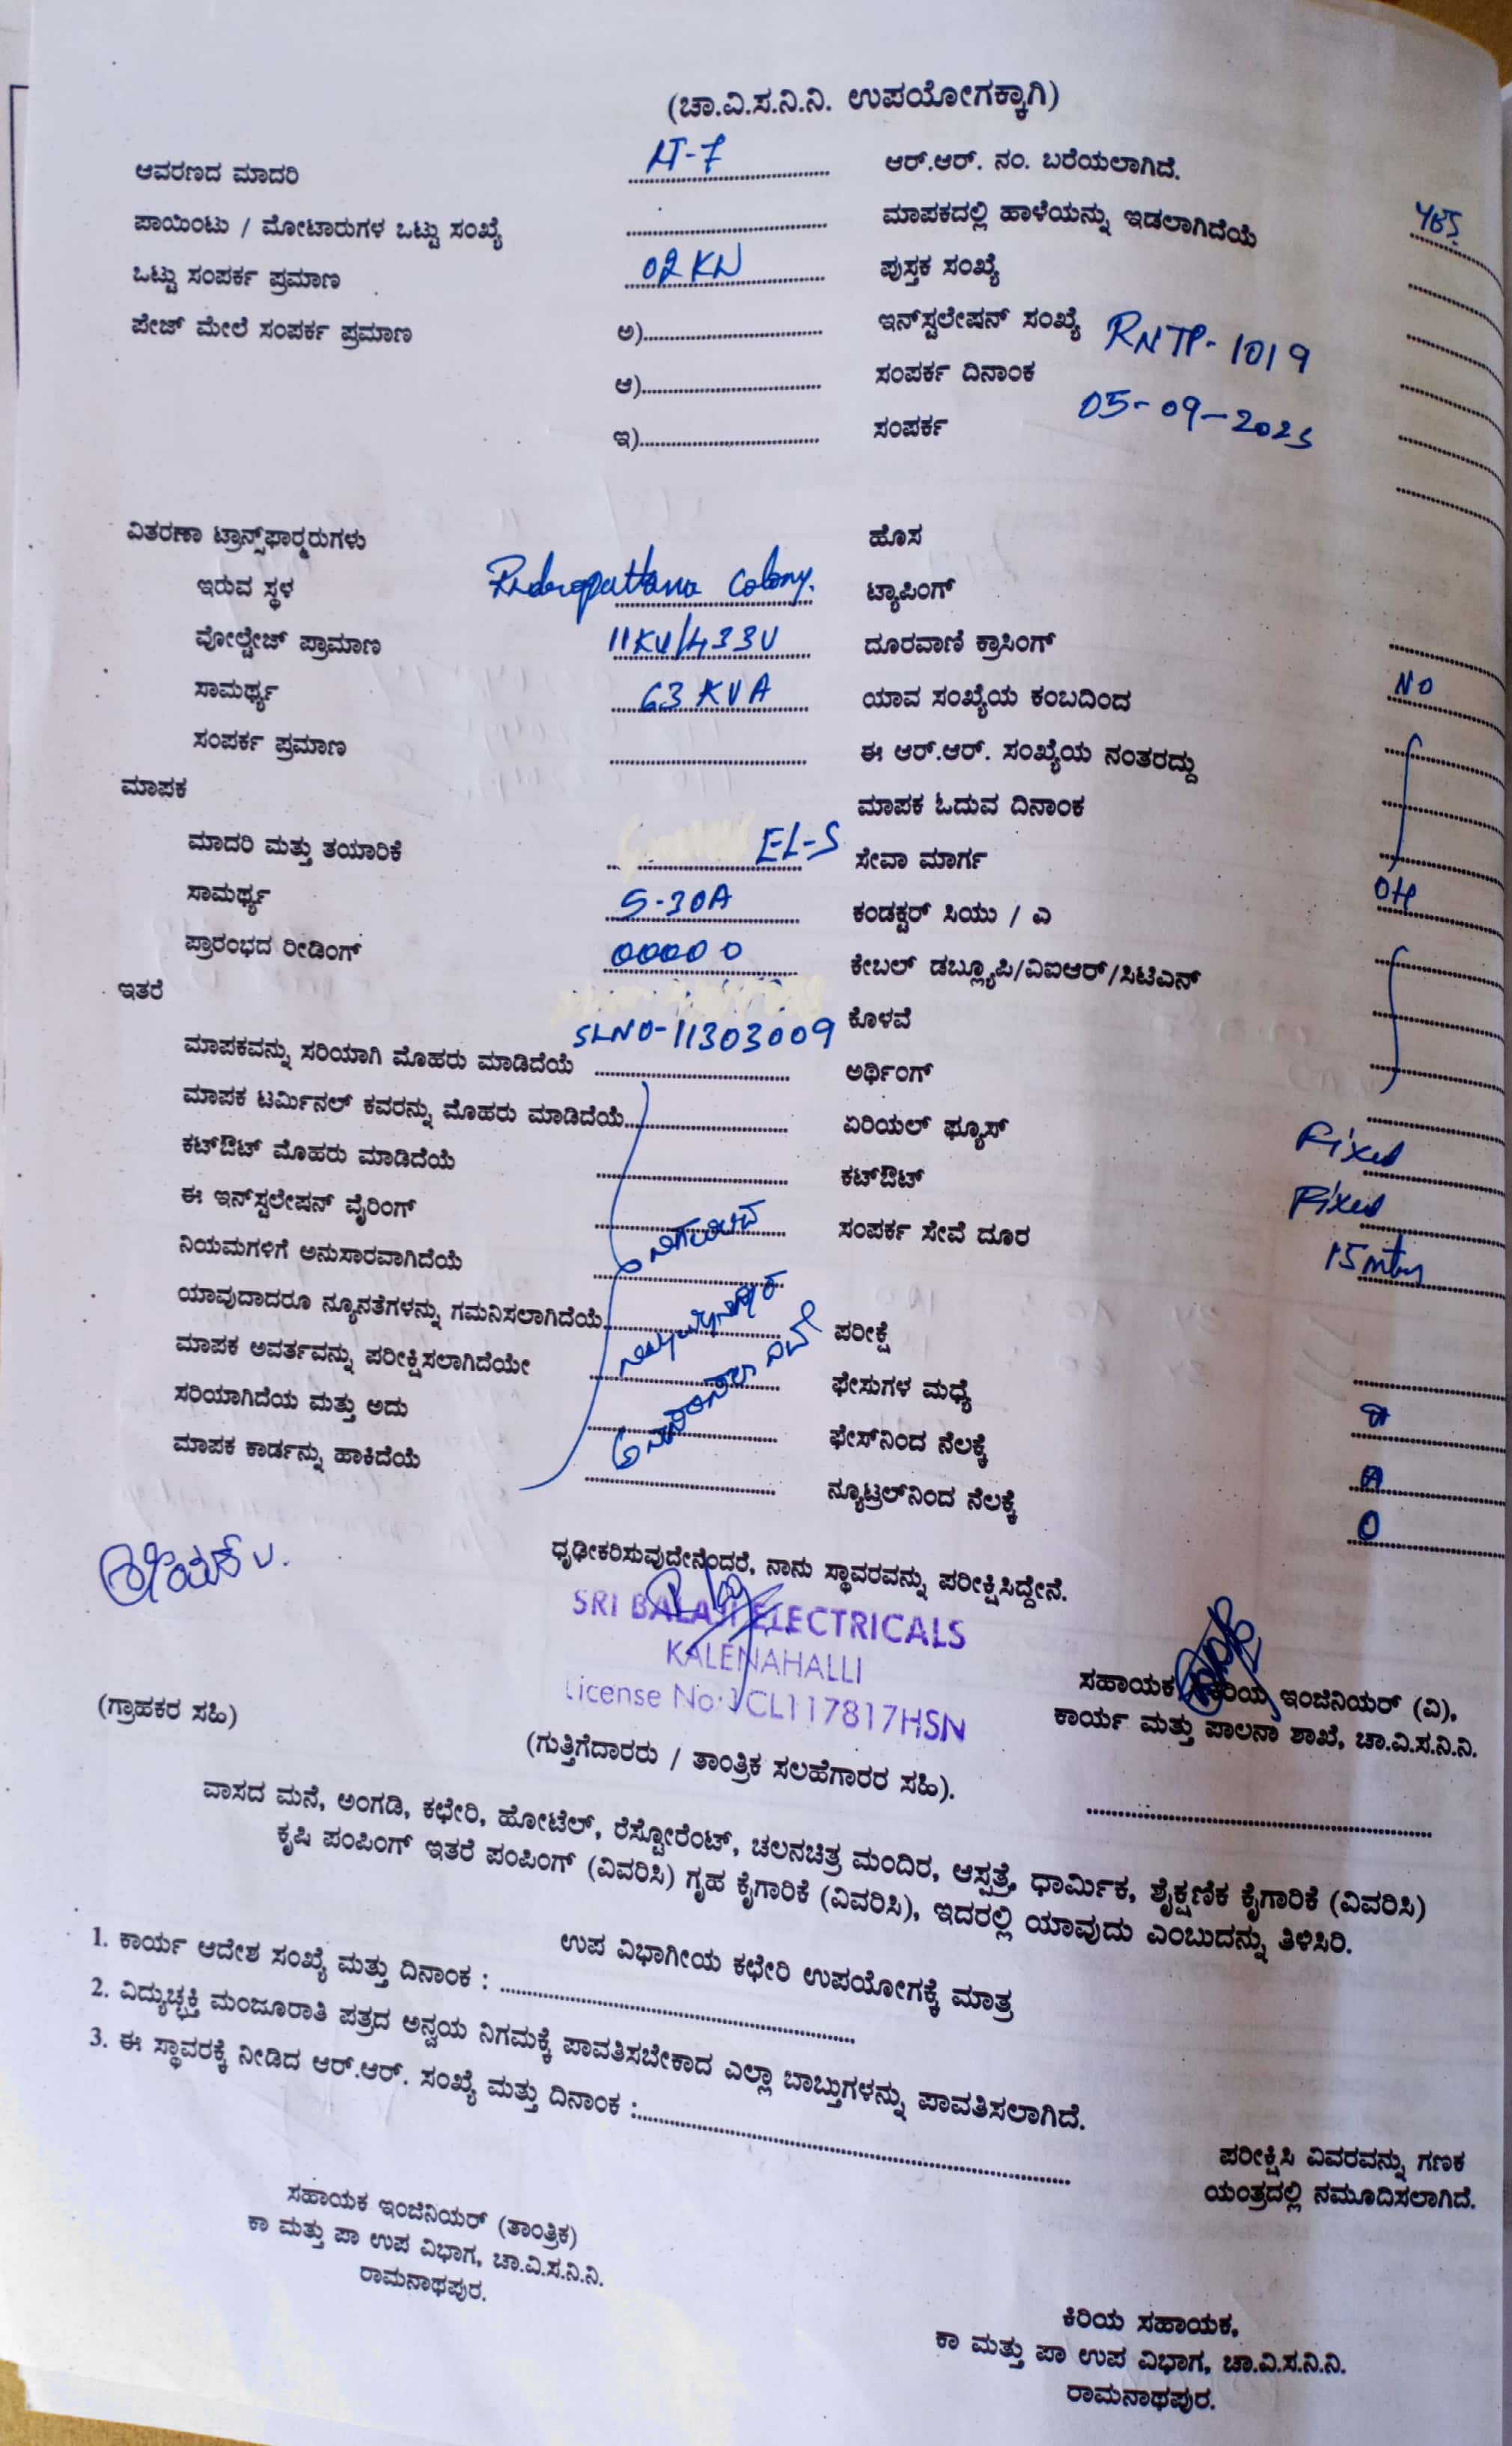 (ಚಾ.ವಿ.ಸ.ನಿ.ನಿ. ಉಪಯೋಗಕ್ಕಾಗಿ)
ಆವರಣದ ಮಾದರಿ LT-7
ಪಾಯಿಂಟು / ಮೋಟಾರುಗಳ ಒಟ್ಟು ಸಂಖ್ಯೆ
ಒಟ್ಟು ಸಂಪರ್ಕ ಪ್ರಮಾಣ 02 KW
ಪೇಜ್ ಮೇಲೆ ಸಂಪರ್ಕ ಪ್ರಮಾಣ ಅ)
ಆ)
ಇ)
ಆರ್.ಆರ್. ನಂ. ಬರೆಯಲಾಗಿದೆ.
ಮಾಪಕದಲ್ಲಿ ಹಾಳೆಯನ್ನು ಇಡಲಾಗಿದೆಯೆ YES
ಪುಸ್ತಕ ಸಂಖ್ಯೆ
ಇನ್‌ಸ್ಟಲೇಷನ್ ಸಂಖ್ಯೆ RNTP-1019
ಸಂಪರ್ಕ ದಿನಾಂಕ 05-09-2025
ಸಂಪರ್ಕ
ವಿತರಣಾ ಟ್ರಾನ್ಸ್‌ಫಾರ್‍ಮರುಗಳು
ಇರುವ ಸ್ಥಳ Colony.
ವೋಲ್ಟೇಜ್ ಪ್ರಾಮಾಣ 11KV/433V
ಸಾಮರ್ಥ್ಯ 63 KVA
ಸಂಪರ್ಕ ಪ್ರಮಾಣ
ಮಾಪಕ
ಮಾದರಿ ಮತ್ತು ತಯಾರಿಕೆ EL-S
ಸಾಮರ್ಥ್ಯ 5-30A
ಪ್ರಾರಂಭದ ರೀಡಿಂಗ್ 00000
ಇತರೆ
SLNO-11303009
ಮಾಪಕವನ್ನು ಸರಿಯಾಗಿ ಮೊಹರು ಮಾಡಿದೆಯೆ
ಮಾಪಕ ಟರ್ಮಿನಲ್ ಕವರನ್ನು ಮೊಹರು ಮಾಡಿದೆಯೆ
ಕಟ್‌ಔಟ್ ಮೊಹರು ಮಾಡಿದೆಯೆ
ಈ ಇನ್‌ಸ್ಟಲೇಷನ್ ವೈರಿಂಗ್
ನಿಯಮಗಳಿಗೆ ಅನುಸಾರವಾಗಿದೆಯೆ
ಯಾವುದಾದರೂ ನ್ಯೂನತೆಗಳನ್ನು ಗಮನಿಸಲಾಗಿದೆಯೆ
ಮಾಪಕ ಅವರ್ತವನ್ನು ಪರೀಕ್ಷಿಸಲಾಗಿದೆಯೇ
ಸರಿಯಾಗಿದೆಯ ಮತ್ತು ಅದು
ಮಾಪಕ ಕಾರ್ಡನ್ನು ಹಾಕಿದೆಯೆ
ಹೊಸ
ಟ್ಯಾಪಿಂಗ್
ದೂರವಾಣಿ ಕ್ರಾಸಿಂಗ್ NO
ಯಾವ ಸಂಖ್ಯೆಯ ಕಂಬದಿಂದ
ಈ ಆರ್.ಆರ್. ಸಂಖ್ಯೆಯ ನಂತರದ್ದು
ಮಾಪಕ ಓದುವ ದಿನಾಂಕ
ಸೇವಾ ಮಾರ್ಗ OH
ಕಂಡಕ್ಟರ್ ಸಿಯು / ಎ
ಕೇಬಲ್ ಡಬ್ಲ್ಯೂಪಿ/ವಿಐಆರ್/ಸಿಟಿಎನ್
ಕೊಳವೆ
ಅರ್ಥಿಂಗ್
ಏರಿಯಲ್ ಫ್ಯೂಸ್ Fixed
ಕಟ್‌ಔಟ್ Fixed
ಸಂಪರ್ಕ ಸೇವೆ ದೂರ 15 mtrs
ಪರೀಕ್ಷೆ
ಫೇಸುಗಳ ಮಧ್ಯೆ
ಫೇಸ್‌ನಿಂದ ನೆಲಕ್ಕೆ
ನ್ಯೂಟ್ರಲ್‌ನಿಂದ ನೆಲಕ್ಕೆ 0
ಧೃಢೀಕರಿಸುವುದೇನೆಂದರೆ, ನಾನು ಸ್ಥಾವರವನ್ನು ಪರೀಕ್ಷಿಸಿದ್ದೇನೆ.
SRI BALAJI ELECTRICALS
KALENAHALLI
License No: 1CL117817HSN
(ಗ್ರಾಹಕರ ಸಹಿ)
(ಗುತ್ತಿಗೆದಾರರು / ತಾಂತ್ರಿಕ ಸಲಹೆಗಾರರ ಸಹಿ).
ಸಹಾಯಕ / ಕಿರಿಯ ಇಂಜಿನಿಯರ್ (ವಿ),
ಕಾರ್ಯ ಮತ್ತು ಪಾಲನಾ ಶಾಖೆ, ಚಾ.ವಿ.ಸ.ನಿ.ನಿ.
ವಾಸದ ಮನೆ, ಅಂಗಡಿ, ಕಛೇರಿ, ಹೋಟೆಲ್, ರೆಸ್ಟೋರೆಂಟ್, ಚಲನಚಿತ್ರ ಮಂದಿರ, ಆಸ್ಪತ್ರೆ, ಧಾರ್ಮಿಕ, ಶೈಕ್ಷಣಿಕ ಕೈಗಾರಿಕೆ (ವಿವರಿಸಿ)
ಕೃಷಿ ಪಂಪಿಂಗ್ ಇತರೆ ಪಂಪಿಂಗ್ (ವಿವರಿಸಿ) ಗೃಹ ಕೈಗಾರಿಕೆ (ವಿವರಿಸಿ), ಇದರಲ್ಲಿ ಯಾವುದು ಎಂಬುದನ್ನು ತಿಳಿಸಿರಿ.
ಉಪ ವಿಭಾಗೀಯ ಕಛೇರಿ ಉಪಯೋಗಕ್ಕೆ ಮಾತ್ರ
1. ಕಾರ್ಯ ಆದೇಶ ಸಂಖ್ಯೆ ಮತ್ತು ದಿನಾಂಕ :
2. ವಿದ್ಯುಚ್ಛಕ್ತಿ ಮಂಜೂರಾತಿ ಪತ್ರದ ಅನ್ವಯ ನಿಗಮಕ್ಕೆ ಪಾವತಿಸಬೇಕಾದ ಎಲ್ಲಾ ಬಾಬ್ತುಗಳನ್ನು ಪಾವತಿಸಲಾಗಿದೆ.
3. ಈ ಸ್ಥಾವರಕ್ಕೆ ನೀಡಿದ ಆರ್.ಆರ್. ಸಂಖ್ಯೆ ಮತ್ತು ದಿನಾಂಕ :
ಪರೀಕ್ಷಿಸಿ ವಿವರವನ್ನು ಗಣಕ
ಯಂತ್ರದಲ್ಲಿ ನಮೂದಿಸಲಾಗಿದೆ.
ಸಹಾಯಕ ಇಂಜಿನಿಯರ್ (ತಾಂತ್ರಿಕ)
ಕಾ ಮತ್ತು ಪಾ ಉಪ ವಿಭಾಗ, ಚಾ.ವಿ.ಸ.ನಿ.ನಿ.
ರಾಮನಾಥಪುರ.
ಕಿರಿಯ ಸಹಾಯಕ,
ಕಾ ಮತ್ತು ಪಾ ಉಪ ವಿಭಾಗ, ಚಾ.ವಿ.ಸ.ನಿ.ನಿ.
ರಾಮನಾಥಪುರ.